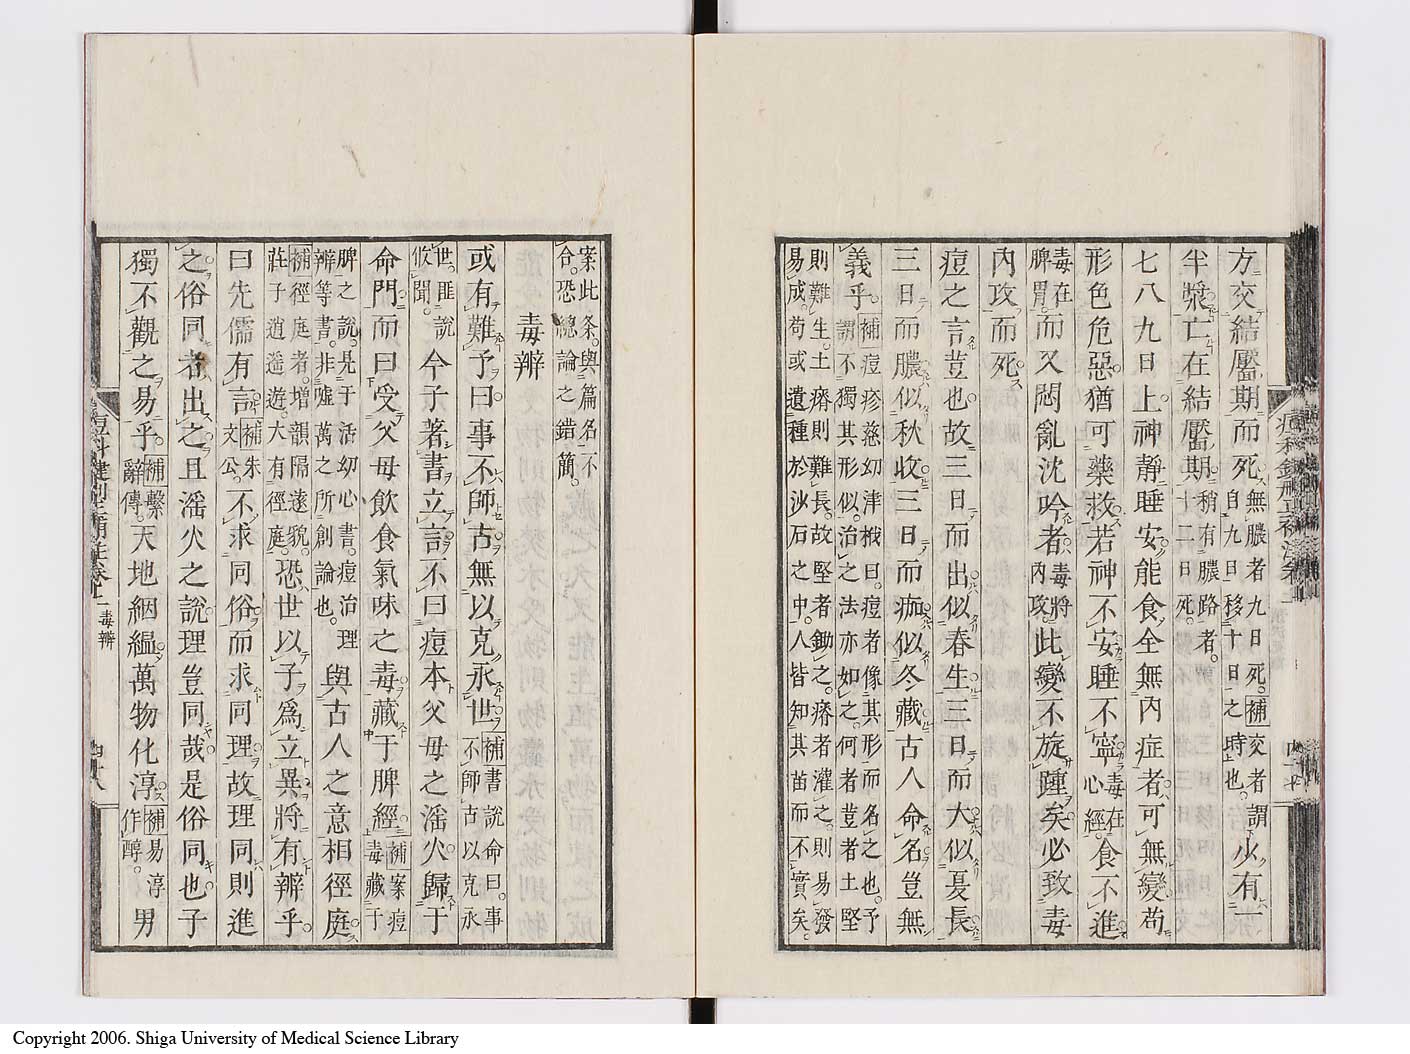 方交結靨期而死無膿者九日死。補交者謂少有一
半漿亡在結靨期。稍有膿路者。十二日死。自九日移十日之時也。
七八九日上神靜睡安能食全無內症者可無變苟
形色危惡猶可藥救若神不安睡不寧毒在心經。食不進
毒在脾胃。而又悶亂沈吟者毒將內攻。此變不旋踵矣必致毒
內攻而死
痘之言豈也故三日而出似春生三日而大似夏長
三日而膿似秋收三日而痂似冬藏古人命名豈無
義乎。補痘疹慈幼津栰曰。痘者像其形而名之也。予謂不獨其形似。治之法亦如之。何者豈者土堅
則難生。土瘠則難長。故堅者鋤之。瘠者灌之。則易發易成。苟或遺種於沙石之中。人皆知其苗而不實矣。
案此条。與篇名不合。恐總論之錯簡。
毒辨
或有難予曰事不師古無以克永世補書說命曰。事不師古以克永
世。匪說攸聞。今子著書立言不曰痘本父母之滛火歸于
命門而曰受父母飲食氣味之毒藏于脾經補案痘毒藏于
脾之說。是于活幼心書。痘治理辨等書。非嘘萬之所創論也。與古人之意相徑庭
補徑庭者。增韻隔遠貌。莊子逍遥遊。大有徑庭。恐世以子爲立異將有辨乎
曰先儒有言補朱文公。不求同俗而求同理故理同則進
之俗同者出之且滛火之說理豈同哉是俗同也子
獨不觀之易乎補繫辭傳。天地絪緼萬物化淳補易淳作醇。男
毒辨
Copyright 2006. Shiga University of Medical Science Library